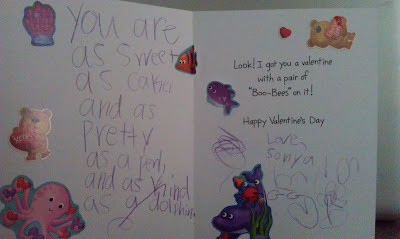 You are
as sweet
as cake
and as
Pretty
as a
and as kind
as a dolphin.
Look! I got you a valentine
with a pair of
"Boo-Bees" on it!
Happy Valentine's Day
Love,
Sonya